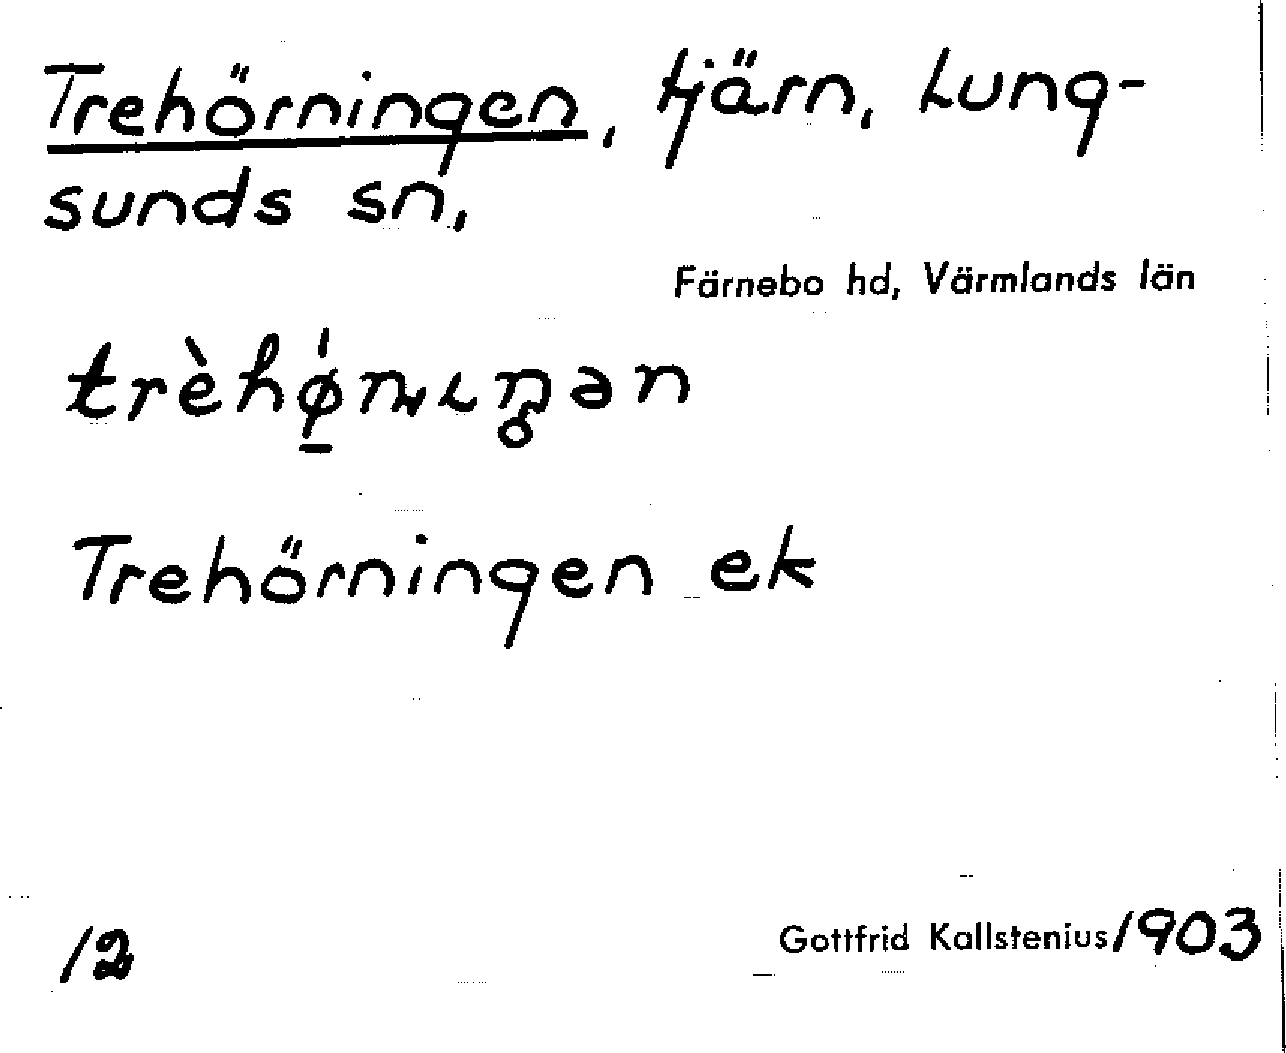 Trehörningen, tjärn, Lung-
sunds sn,
Färnebo hd, Värmlands län
trèhǿ̱ɳɩŋən
Trehörningen ek
12
Gottfrid Kallstenius 1903